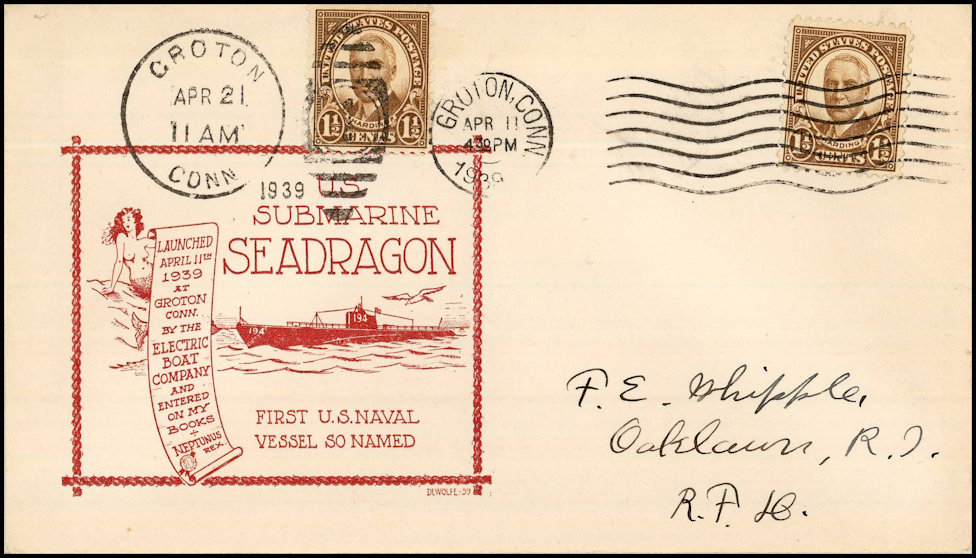 GROTON
APR 21
11 AM
CONN
1939
UNITED STATES POSTAGE
HARDING
1½ CENTS 1½
GROTON, CONN.
APR 11
430PM
1939
UNITED STATES POSTAGE
HARDING
1½ CENTS 1½
U.S.
SUBMARINE
SEADRAGON
LAUNCHED
APRIL 11TH
1939
AT
GROTON
CONN.
BY THE
ELECTRIC
BOAT
COMPANY
AND
ENTERED
ON MY
BOOKS
+
NEPTUNUS
REX.
194
194
FIRST U.S. NAVAL
VESSEL SO NAMED
DEWOLFE-39
F. E. Whipple,
Oaklawn, R.I.
R.F.D.